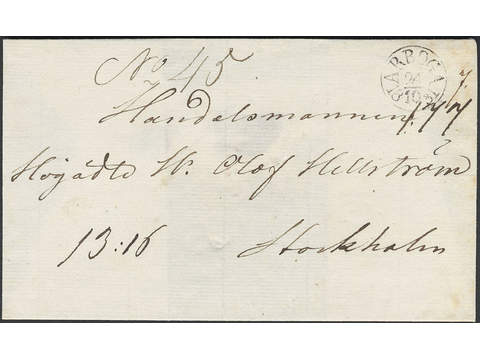 No 45.
ARBOGA
Handelsmannen
Högädle H. Olof Hellström
13:16 Stockholm